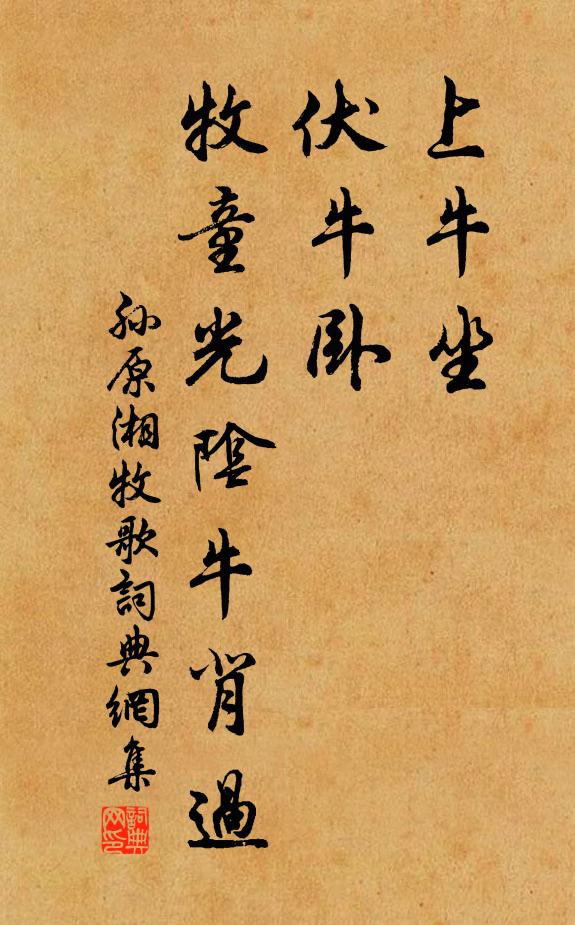 上牛坐
伏牛卧
牧童光陰牛背過
孫原湘牧歌詞典網集
詞典网印